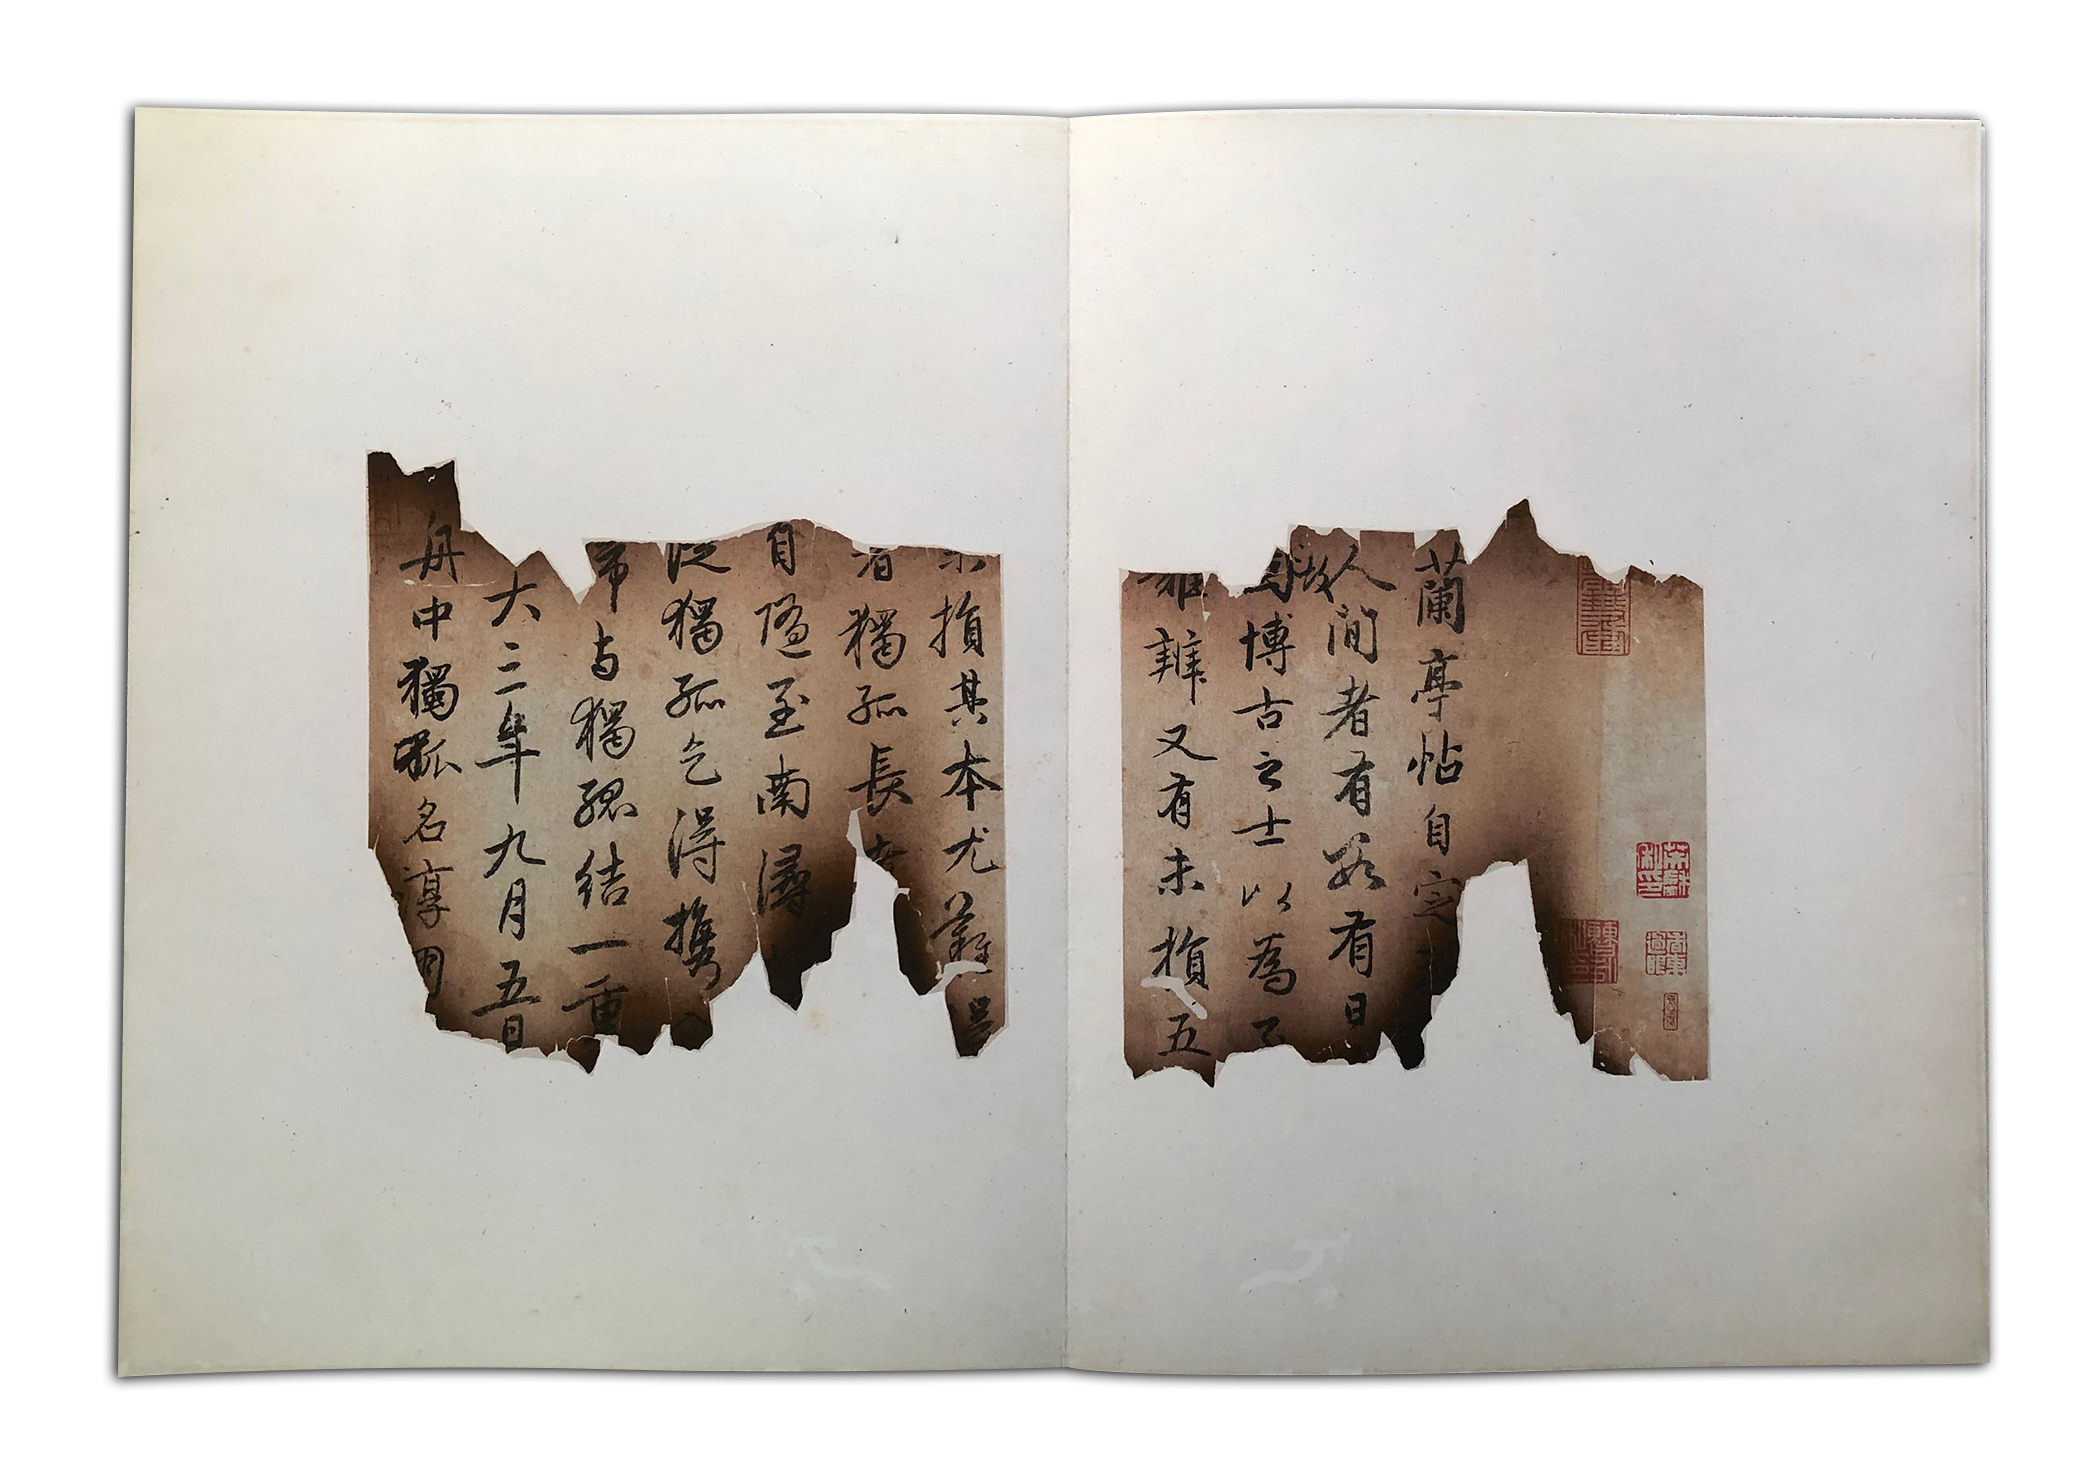 蘭亭帖自定
人間者有數有日
故
博古之士以為
難辨又有未損五
損其本尤難
者獨孤長
自隘至南潯
從獨孤乞得攜
帝与獨孤結一重
大三年九月五日
舟中獨孤名淳朋